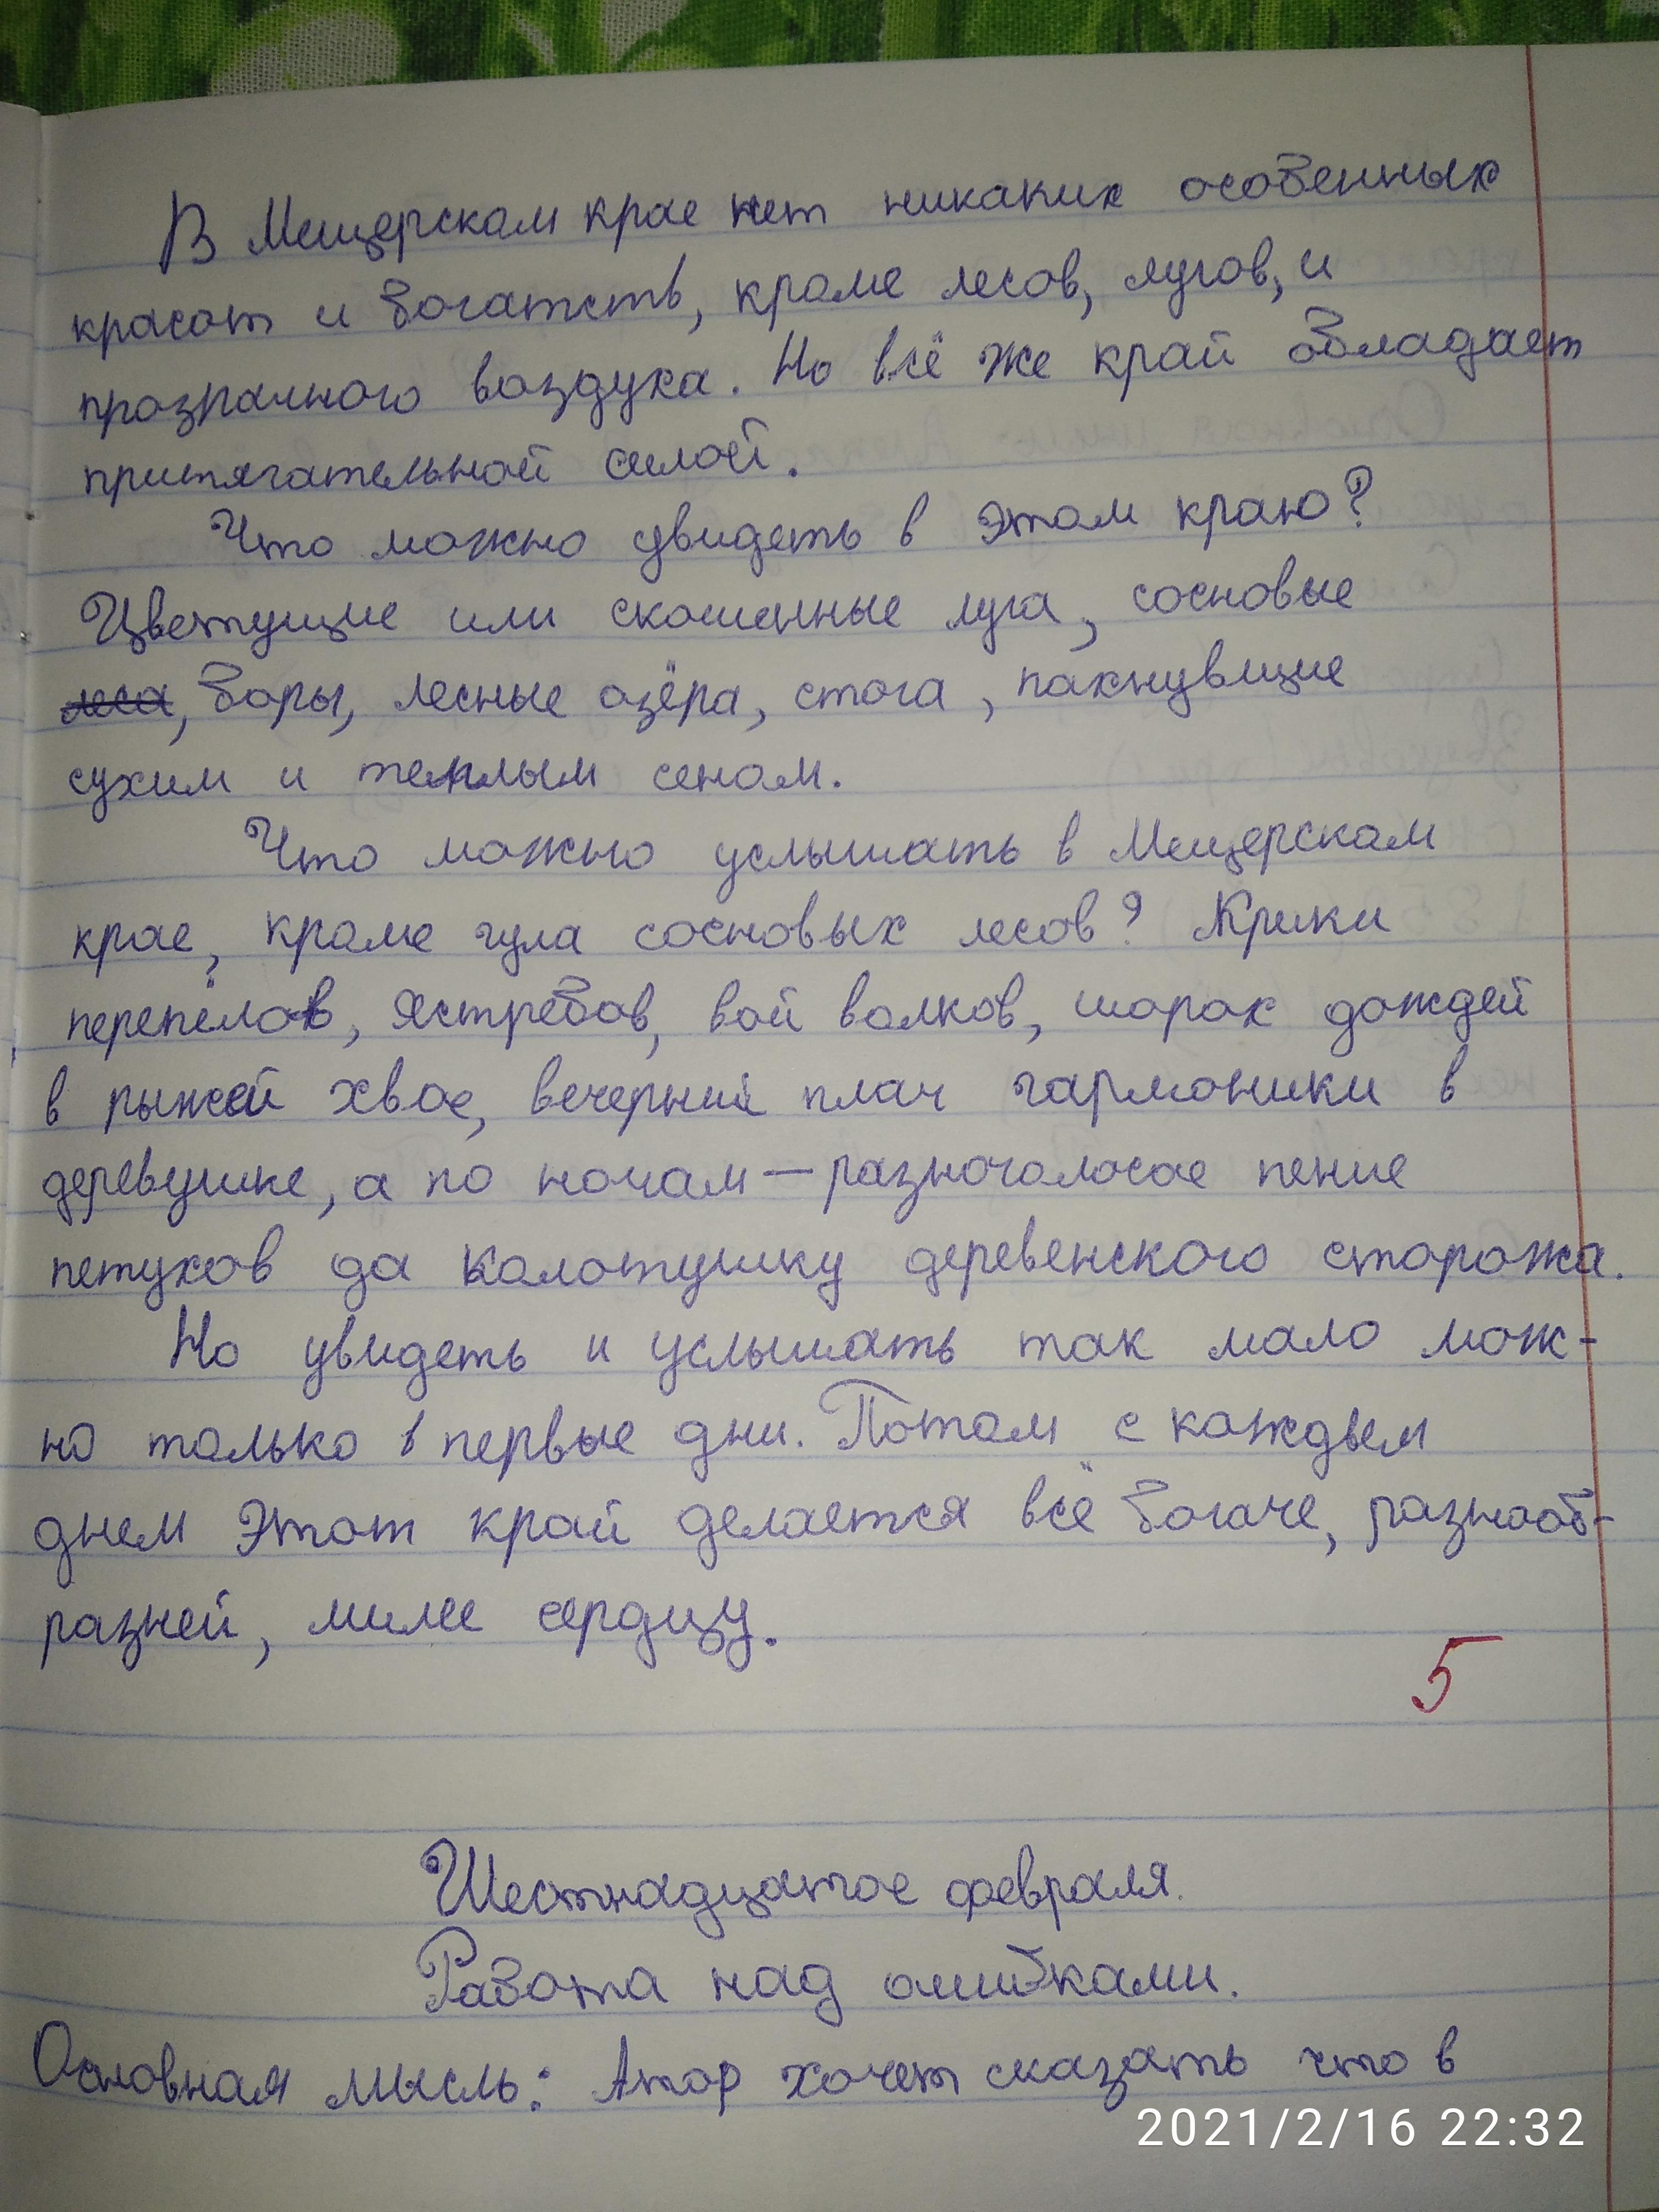 В Мещерском крае нет никаких особенных
красот и богатств, кроме лесов, лугов, и
прозрачного воздуха. Но всё же край обладает
притягательной силой.
Что можно увидеть в этом краю?
Цветущие или скошенные луга, сосновые
леса, боры, лесные озёра, стога, пахнувшие
сухим и теплым сеном.
Что можно услышать в Мещерском
крае, кроме гула сосновых лесов? Крики
перепёлов, ястребов, вой волков, шорох дождей
в рыжей хвое, вечерний плач гармоники в
деревушке, а по ночам — разноголосое пение
петухов да колотушку деревенского сторожа.
Но увидеть и услышать так мало мож-
но только в первые дни. Потом с каждым
днем этот край делается всё богаче, разнооб-
разней, милее сердцу.
5
Шестнадцатое февраля.
Работа над ошибками.
Основная мысль: Автор хочет сказать что в
2021/2/16 22:32